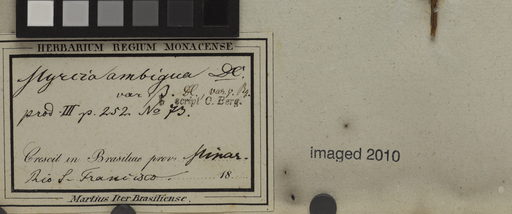 HERBARIUM REGIUM MONACENSE
Myrcia ambigua DC.
var β. DC., var. γ. Bg.
script C. Berg.
prod. III p. 252. No 73.
Crescit in Brasiliae prov. Minar.
Rio S. Francisco. 18
Martius Iter Brasiliense.
imaged 2010